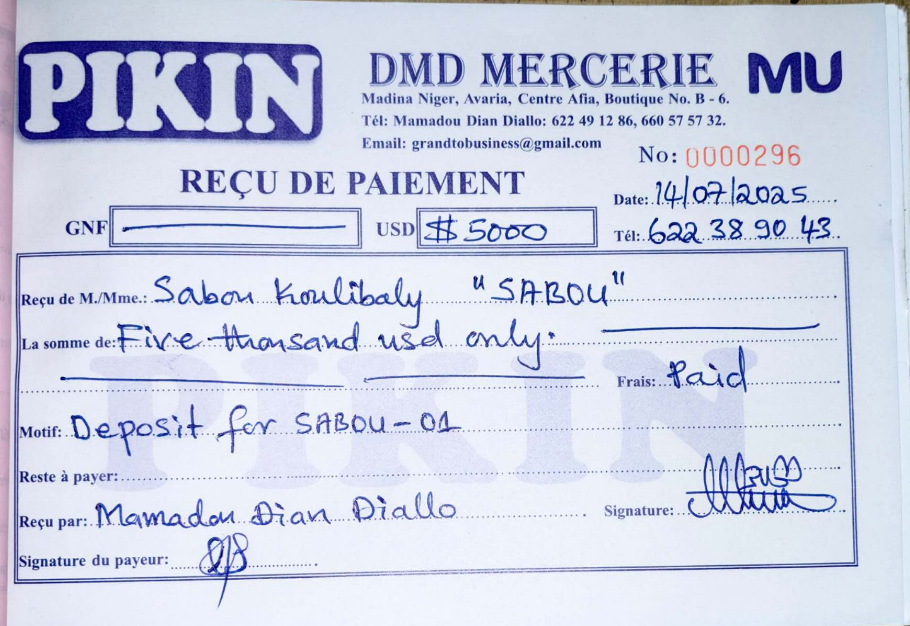 PIKIN
DMD MERCERIE
MU
Madina Niger, Avaria, Centre Afia, Boutique No. B - 6.
Tél: Mamadou Dian Diallo: 622 49 12 86, 660 57 57 32.
Email: grandtobusiness@gmail.com
No: 0000296
REÇU DE PAIEMENT
Date: 14/07/2025
GNF
USD $ 5000
Tél: 622 38 90 43
Reçu de M./Mme.: Sabou Koulibaly "SABOU"
La somme de: Five thousand usd only.
Frais: Paid
PIKIN
Motif: Deposit for SABOU-01
Reste à payer:
Reçu par: Mamadou Dian Diallo
Signature:
Signature du payeur: